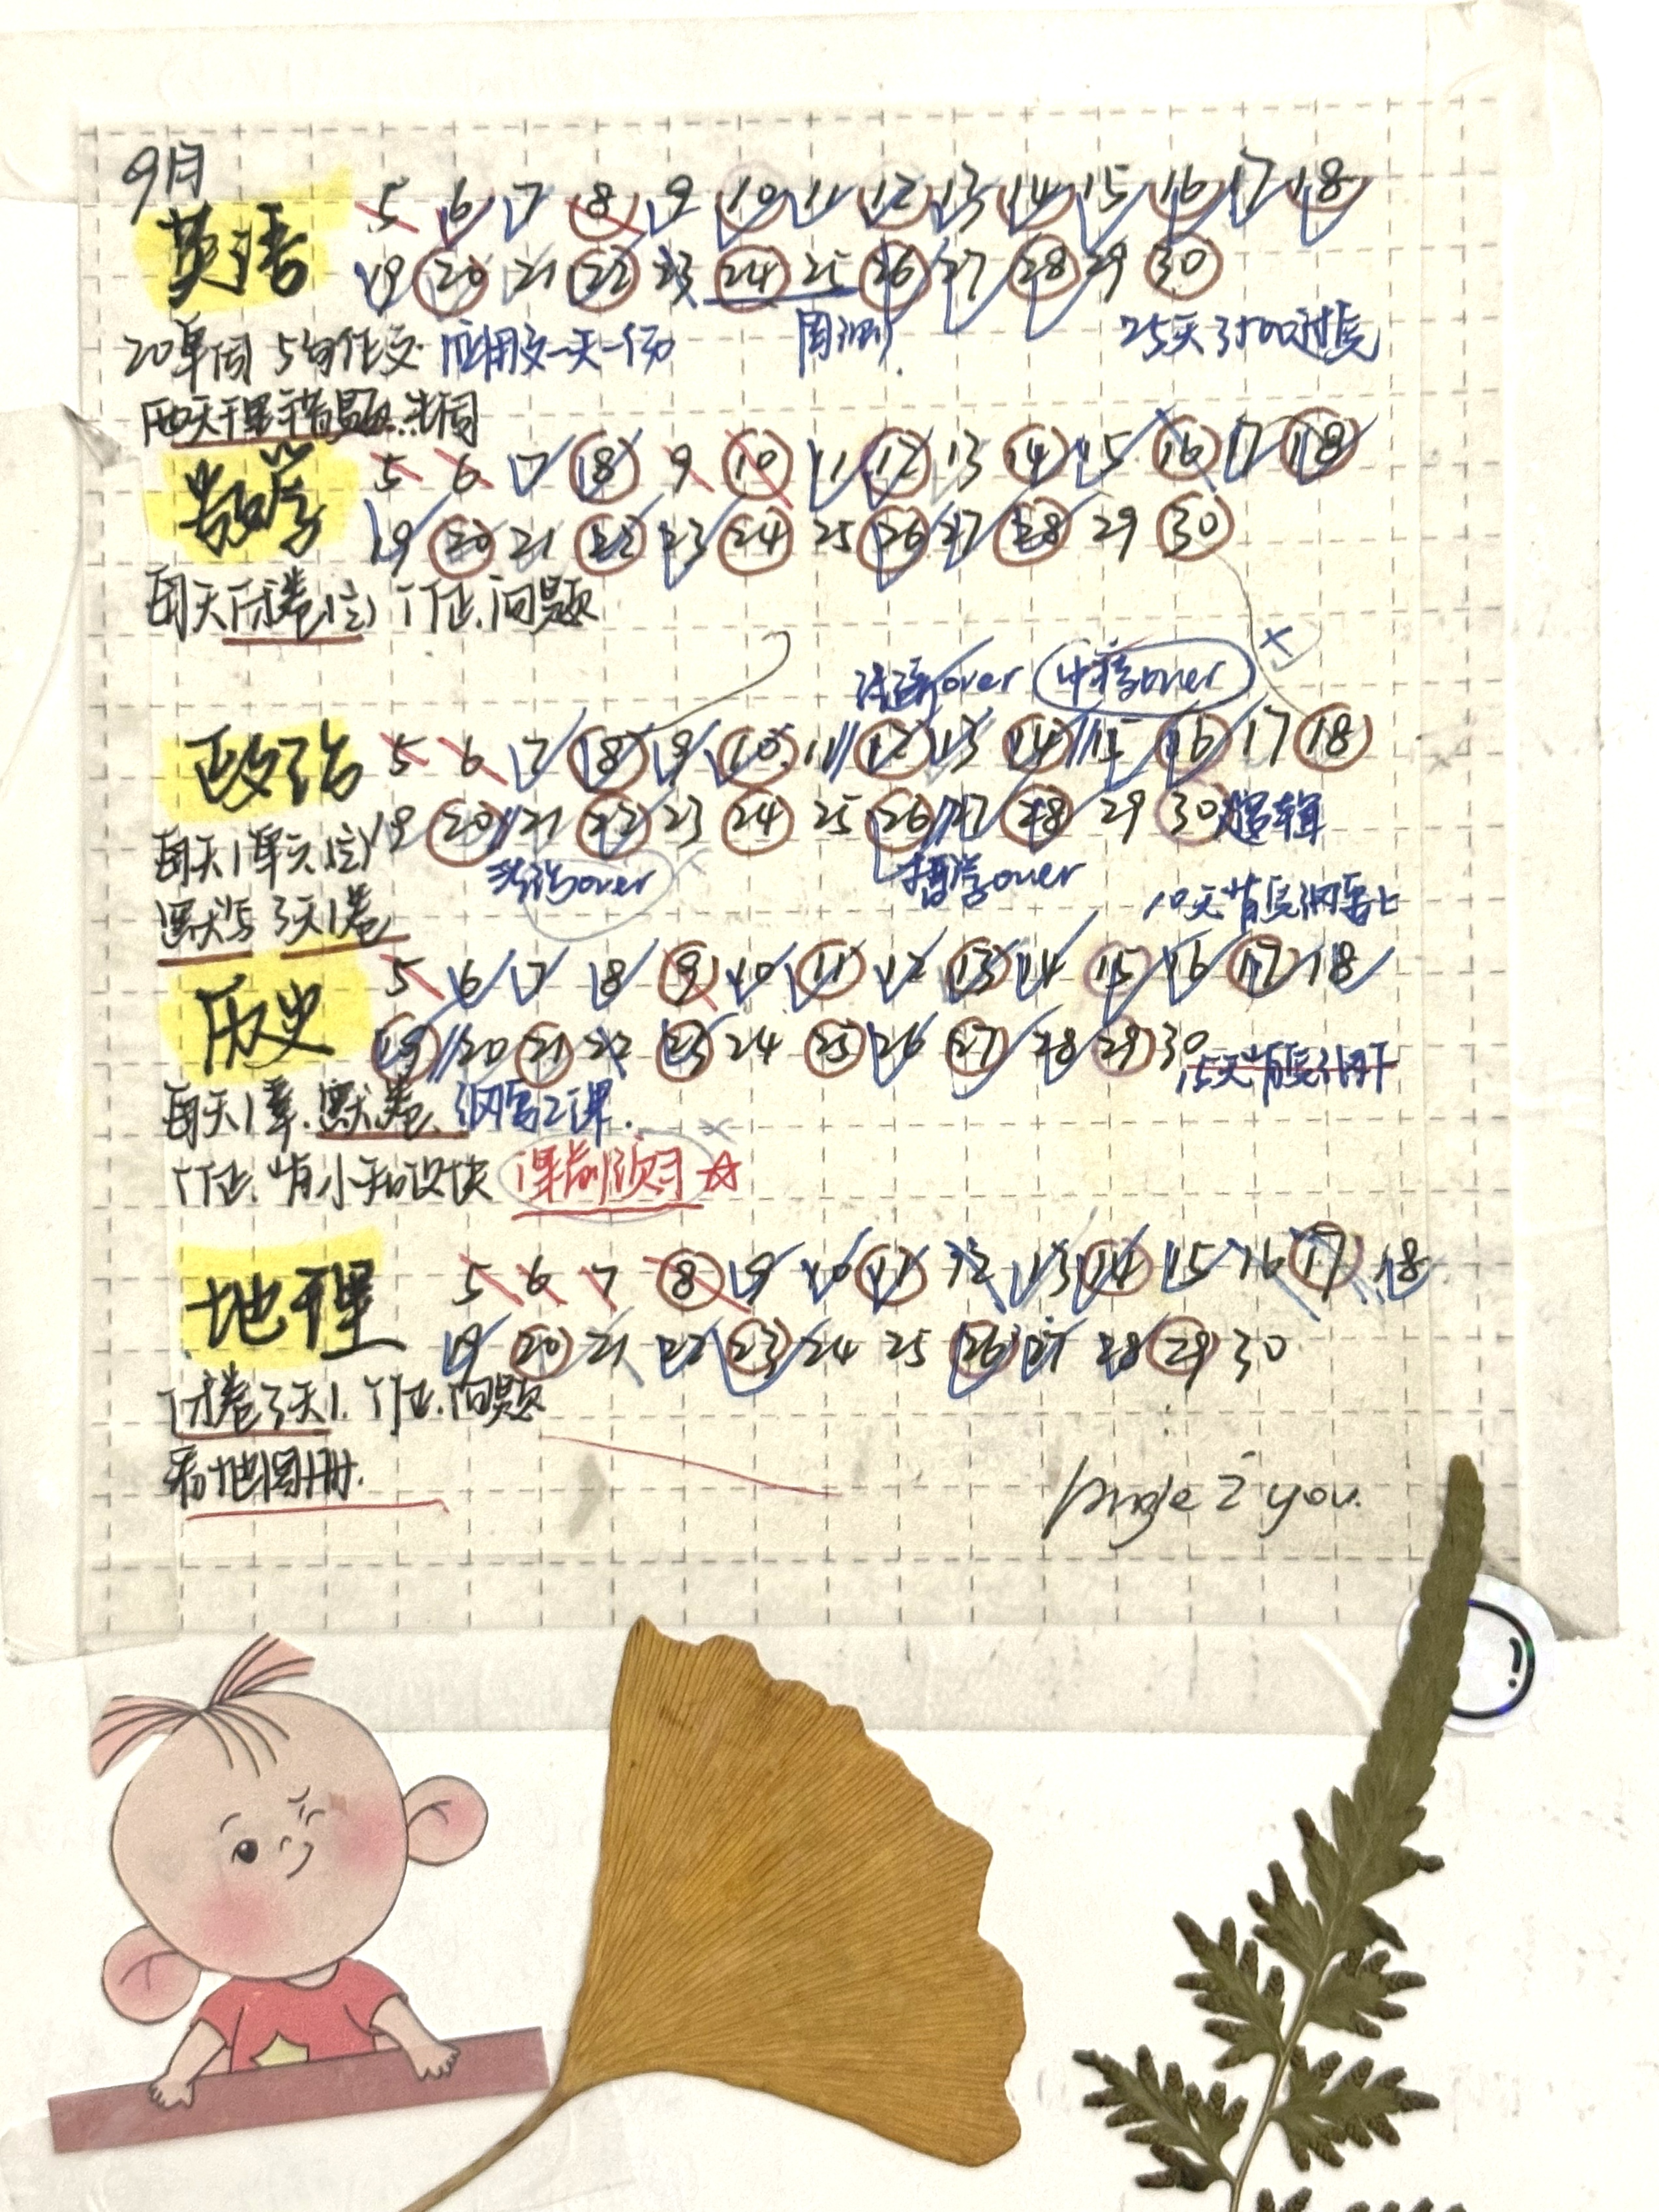 9月
英语 5 6 7 8 9 10 11 12 13 14 15 16 17 18
19 20 21 22 23 24 25 26 27 28 29 30
20单词 5句作文 应用文一天一份 周测 25天3500过完
两天理一错题
数学 5 6 7 8 9 10 11 12 13 14 15 16 17 18
19 20 21 22 23 24 25 26 27 28 29 30
每天 问题
over over
政治 5 6 7 8 9 10 11 12 13 14 15 16 17 18
19 20 21 22 23 24 25 26 27 28 29 30 逻辑
每天1单元 over 哲学over
默写 3天1卷 10天背完纲要上
历史 5 6 7 8 9 10 11 12 13 14 15 16 17 18
19 20 21 22 23 24 25 26 27 28 29 30
15天背完纲下
每天1章. 默卷. 纲要2课.
背小知识块 课前预习
地理 5 6 7 8 9 10 11 12 13 14 15 16 17 18
19 20 21 22 23 24 25 26 27 28 29 30
3天1. 问题
看地图册.
you.